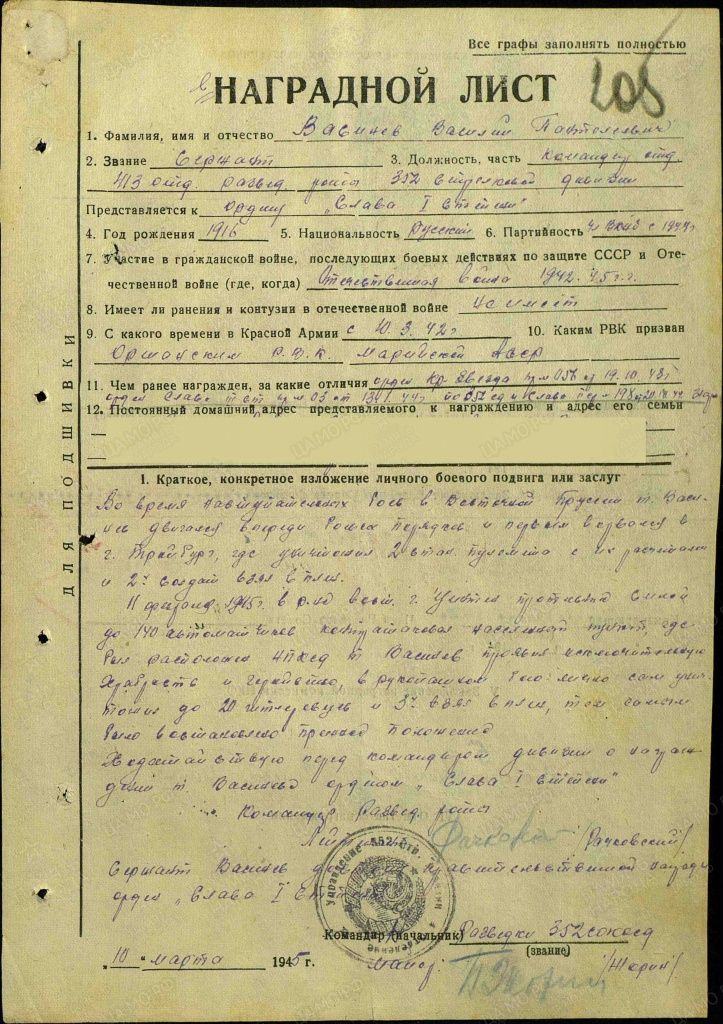 Все графы заполнять полностью
НАГРАДНОЙ ЛИСТ
205
1. Фамилия, имя и отчество Васичев Василий Пантелеевич
2. Звание Сержант 3. Должность, часть Командир отд.
413 отд. развед. роты 352 стрелковой дивизии
Представляется к ордену „Слава I степени"
4. Год рождения 1916 5. Национальность Русский 6. Партийность чл ВКПб с 1944г
7. Участие в гражданской войне, последующих боевых действиях по защите СССР и Оте-
чественной войне (где, когда) Отечественная война 1942-45г.г.
8. Имеет ли ранения и контузии в отечественной войне не имеет
9. С какого времени в Красной Армии с 10.3.42г 10. Каким РВК призван
Оршанским Р.В.К. Марийской АССР
11. Чем ранее награжден, за какие отличия орден Кр Звезда пр № 056 от 19.10.43г
орден Слава
12. Постоянный домашний адрес представляемого к награждению и адрес его семьи
ДЛЯ ПОДШИВКИ
I. Краткое, конкретное изложение личного боевого подвига или заслуг
Во время наступательных боев в Восточной Пруссии т. Васи-
чев двигался впереди боевых порядков и первым ворвался в
г. Трейбург, где уничтожил 2 стан. пулемета с их расчетами
и 2х солдат взял в плен.
11 февраля 1945г. в р-не вост. г. противник силой
до 140 автоматчиков контратаковал населенный пункт, где
был расположен НП ксд т Васичев проявил исключительную
храбрость и геройство, в рукопашном бою лично сам унич-
тожил до 20 гитлеровцев и 3х взял в плен, тем самым
было восстановлено прежнее положение
Ходатайствую перед командиром дивизии о награж-
дении т. Васичева орденом „Слава I степени"
Командир Развед роты
Лейтенант /Рачковский/
Сержант Васичев достоин правительственной награды
орден „Слава I Степени"
Управление 352 стр. дивизии
Командир (начальник) Разведки 352 сокссд
(звание)
„10" марта 1945 г. майор: /Жорин/